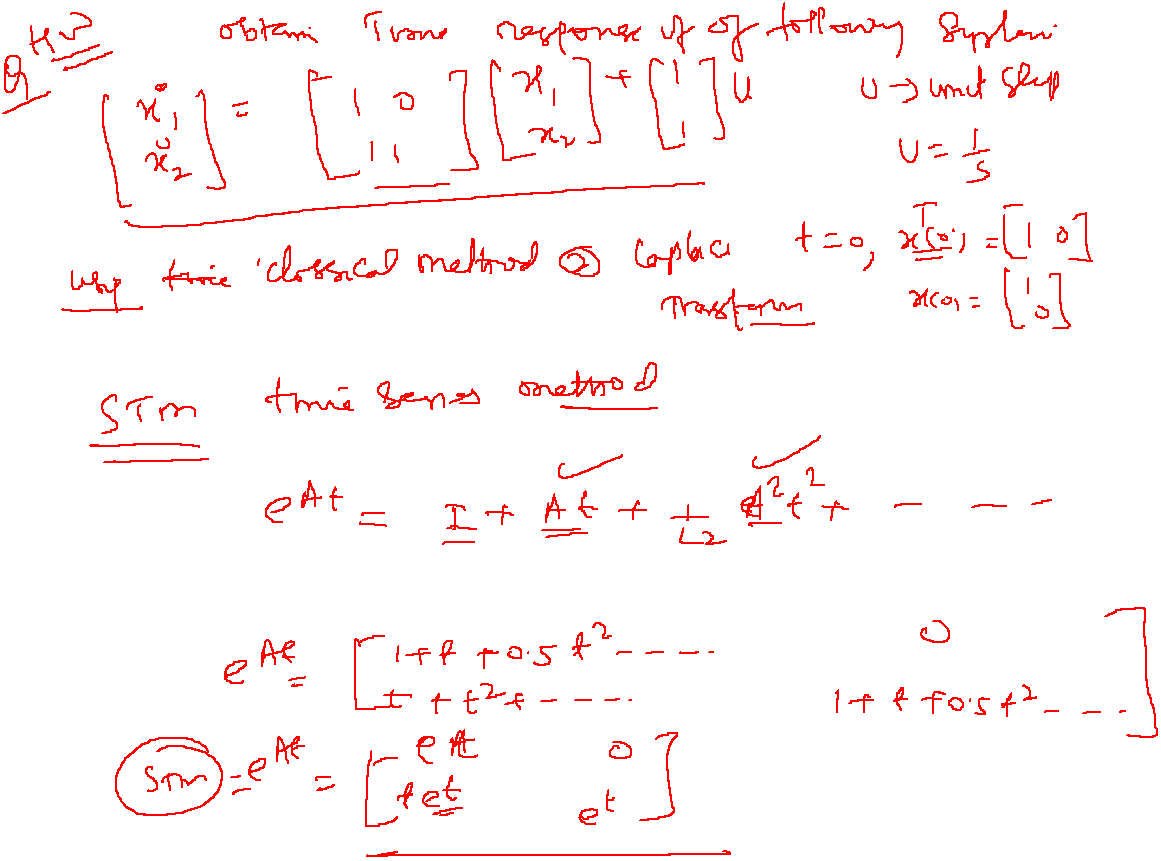 Q HW obtain Time response of of following System
[ẋ1 ẋ2] = [1 0 1 1] [x1 x2] + [1 1] U U → unit Step
U = 1/S
Use time classical method ② Laplace t=0, xT(0) = [1 0]
Transform x(0) = [1 0]
STM time series method
e^At = I + At + 1/∟2 A²t² + - - -
e^At = [1+t+0.5t² ---- 0
t + t² + ---- 1+t+0.5t² ----]
STM = e^At = [e^t 0
te^t e^t]